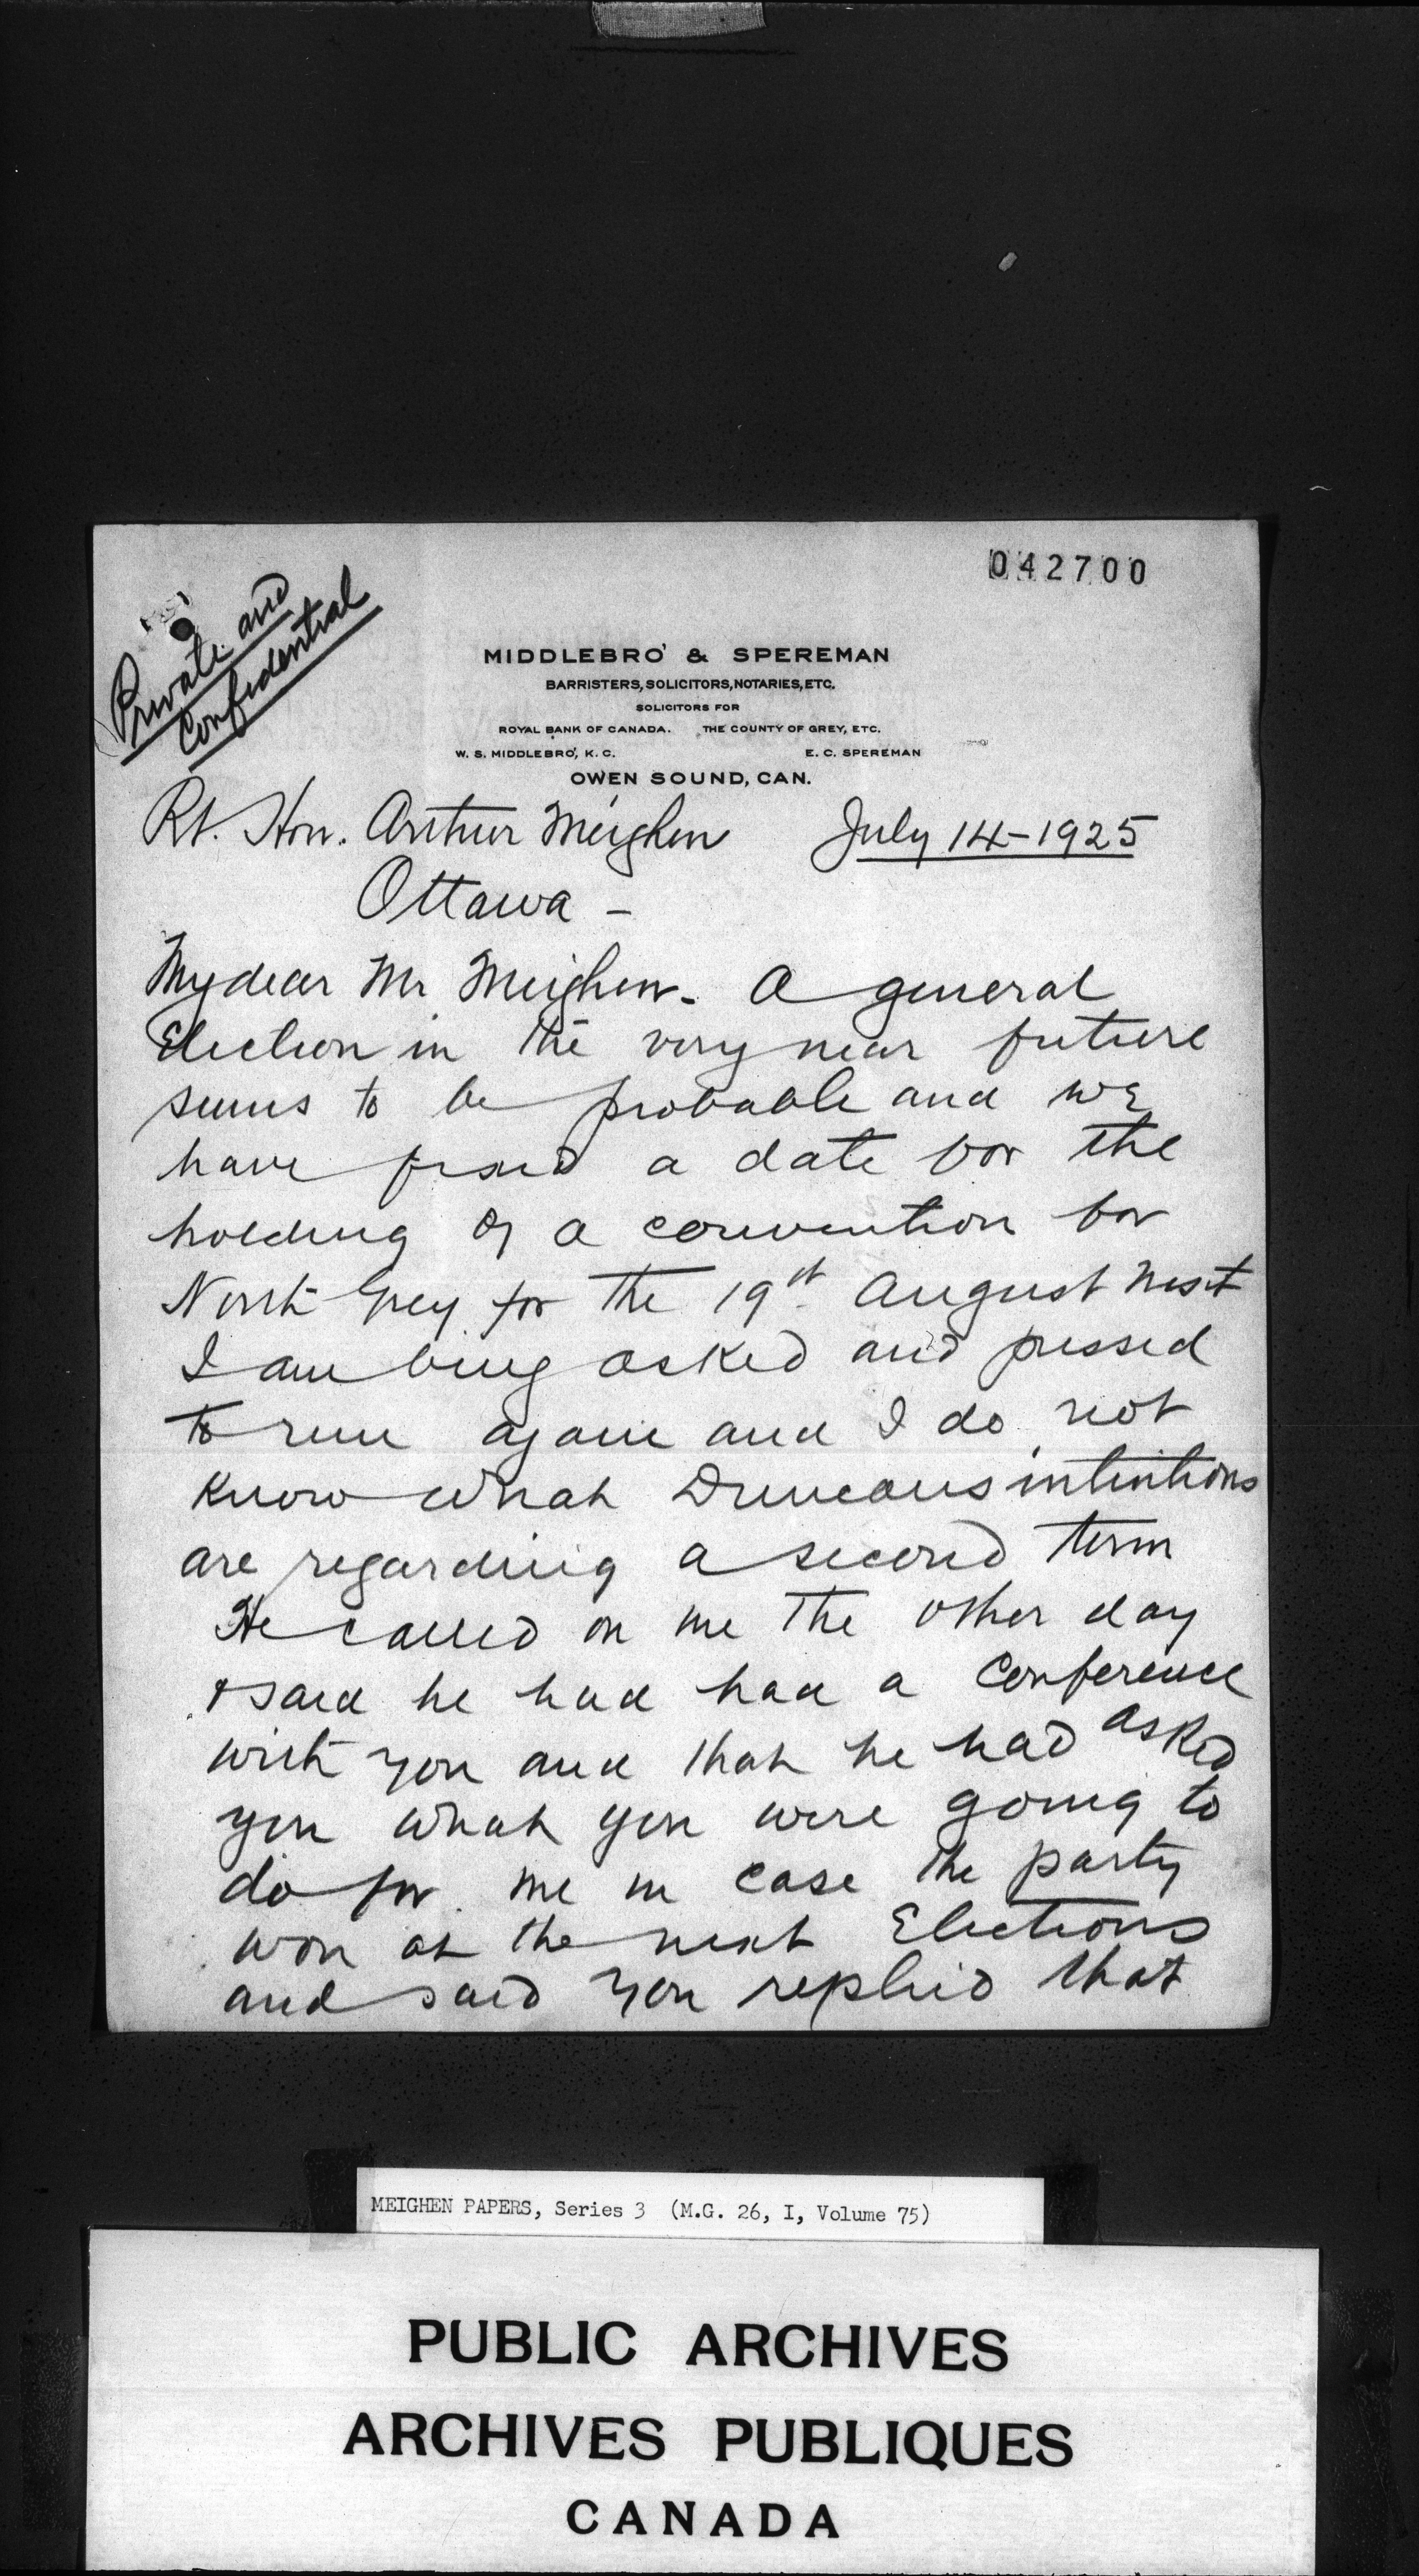 042700
Private and
Confidential
MIDDLEBRO' & SPEREMAN
BARRISTERS, SOLICITORS, NOTARIES, ETC.
SOLICITORS FOR
ROYAL BANK OF CANADA. THE COUNTY OF GREY, ETC.
W. S. MIDDLEBRO', K. C. E. C. SPEREMAN
OWEN SOUND, CAN.
Rt. Hon. Arthur Meighen July 14-1925
Ottawa -
My dear Mr Meighen - A general
Election in the very near future
seems to be probable and we
have fixed a date for the
holding of a convention for
North Grey for the 19th August next
I am being asked and pressed
to run again and I do not
know what Duncans intentions
are regarding a second term
He called on me the other day
& said he had had a conference
with you and that he had asked
you what you were going to
do for me in case the party
won at the next Elections
and said you replied that
MEIGHEN PAPERS, Series 3 (M.G. 26, I, Volume 75)
PUBLIC ARCHIVES
ARCHIVES PUBLIQUES
CANADA